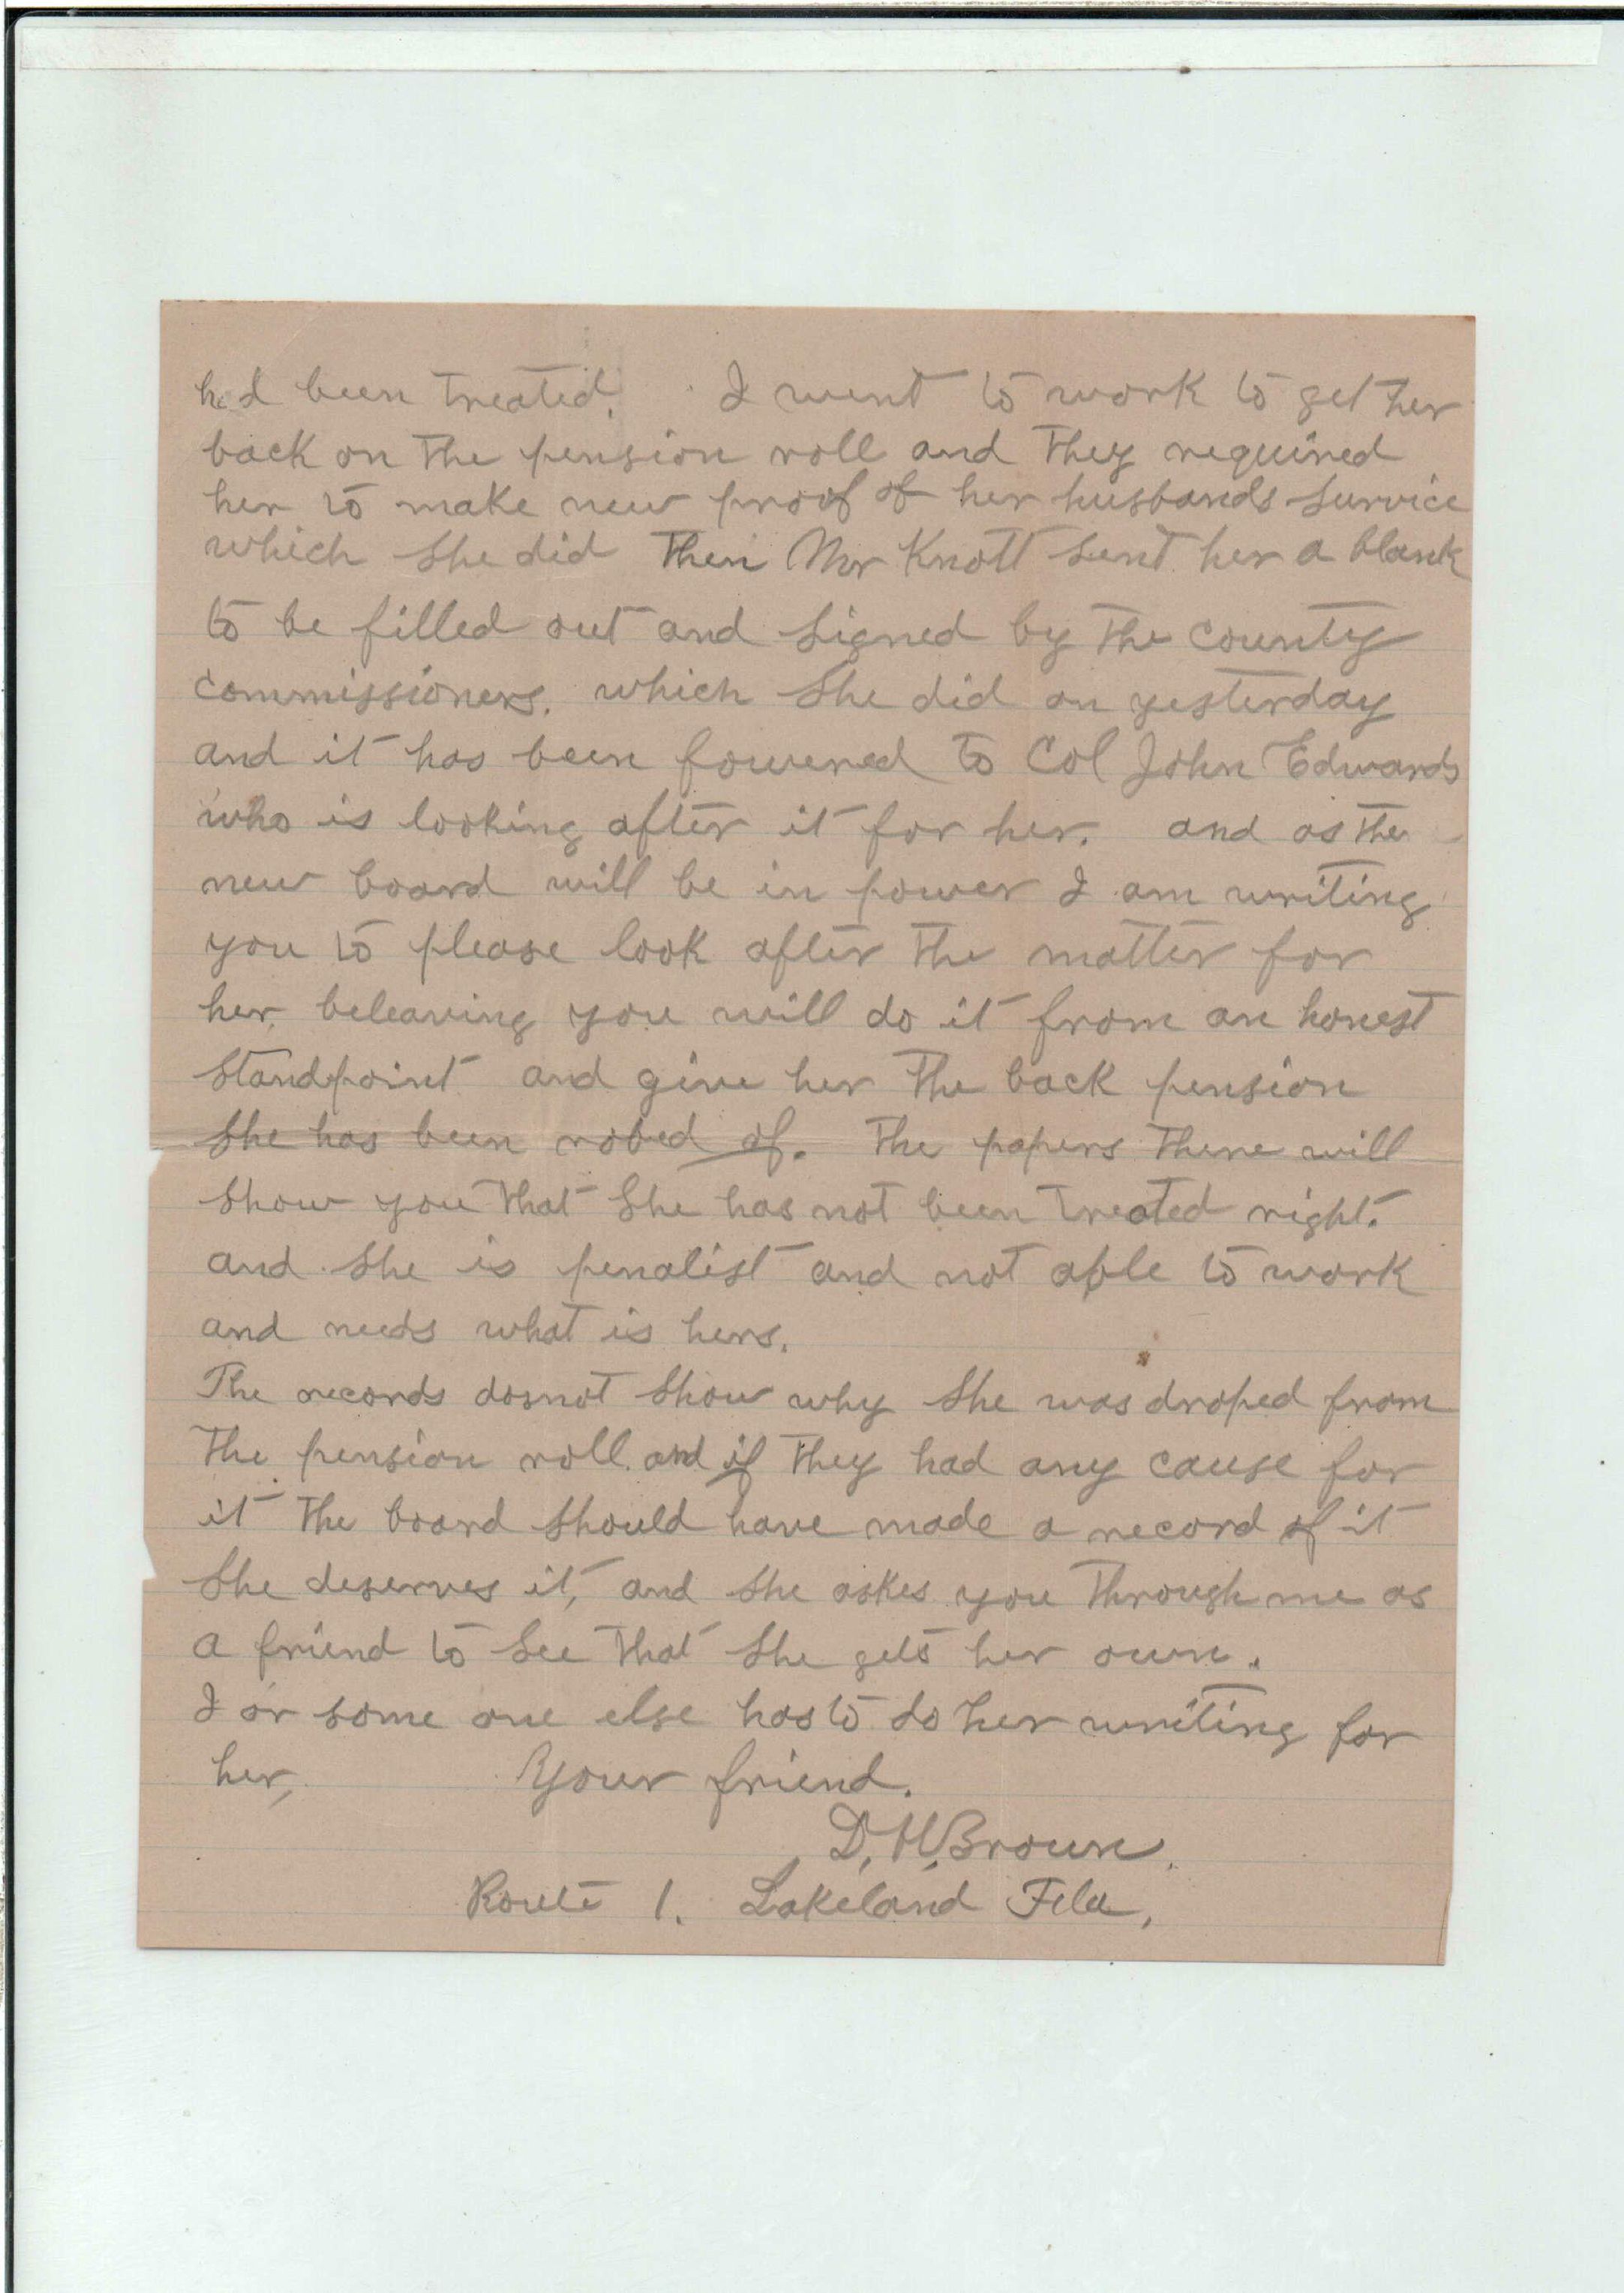 had been treated. I went to work to get her
back on the pension roll and they required
her to make new proof of her husbands survice
which she did Then Mr Knott sent her a blank
to be filled out and signed by the county
commissioners. which she did on yesterday
and it has been fowered to Col John Edwards
who is looking after it for her. and as the
new board will be in power I am writing
you to please look after the matter for
her, beleaving you will do it from an honest
standpoint and give her the back pension
she has been robed of. The papers there will
show you that she has not been treated right.
and she is penalist and not able to work
and needs what is hers.
The records dosnot show why she was droped from
the pension roll. and if they had any cause for
it the board should have made a record of it
She deserves it, and she askes you through me as
a friend to see that she gets her own.
I or some one else has to do her writing for
her, Your friend.
D. H. Brown.
Route 1. Lakeland Fla,